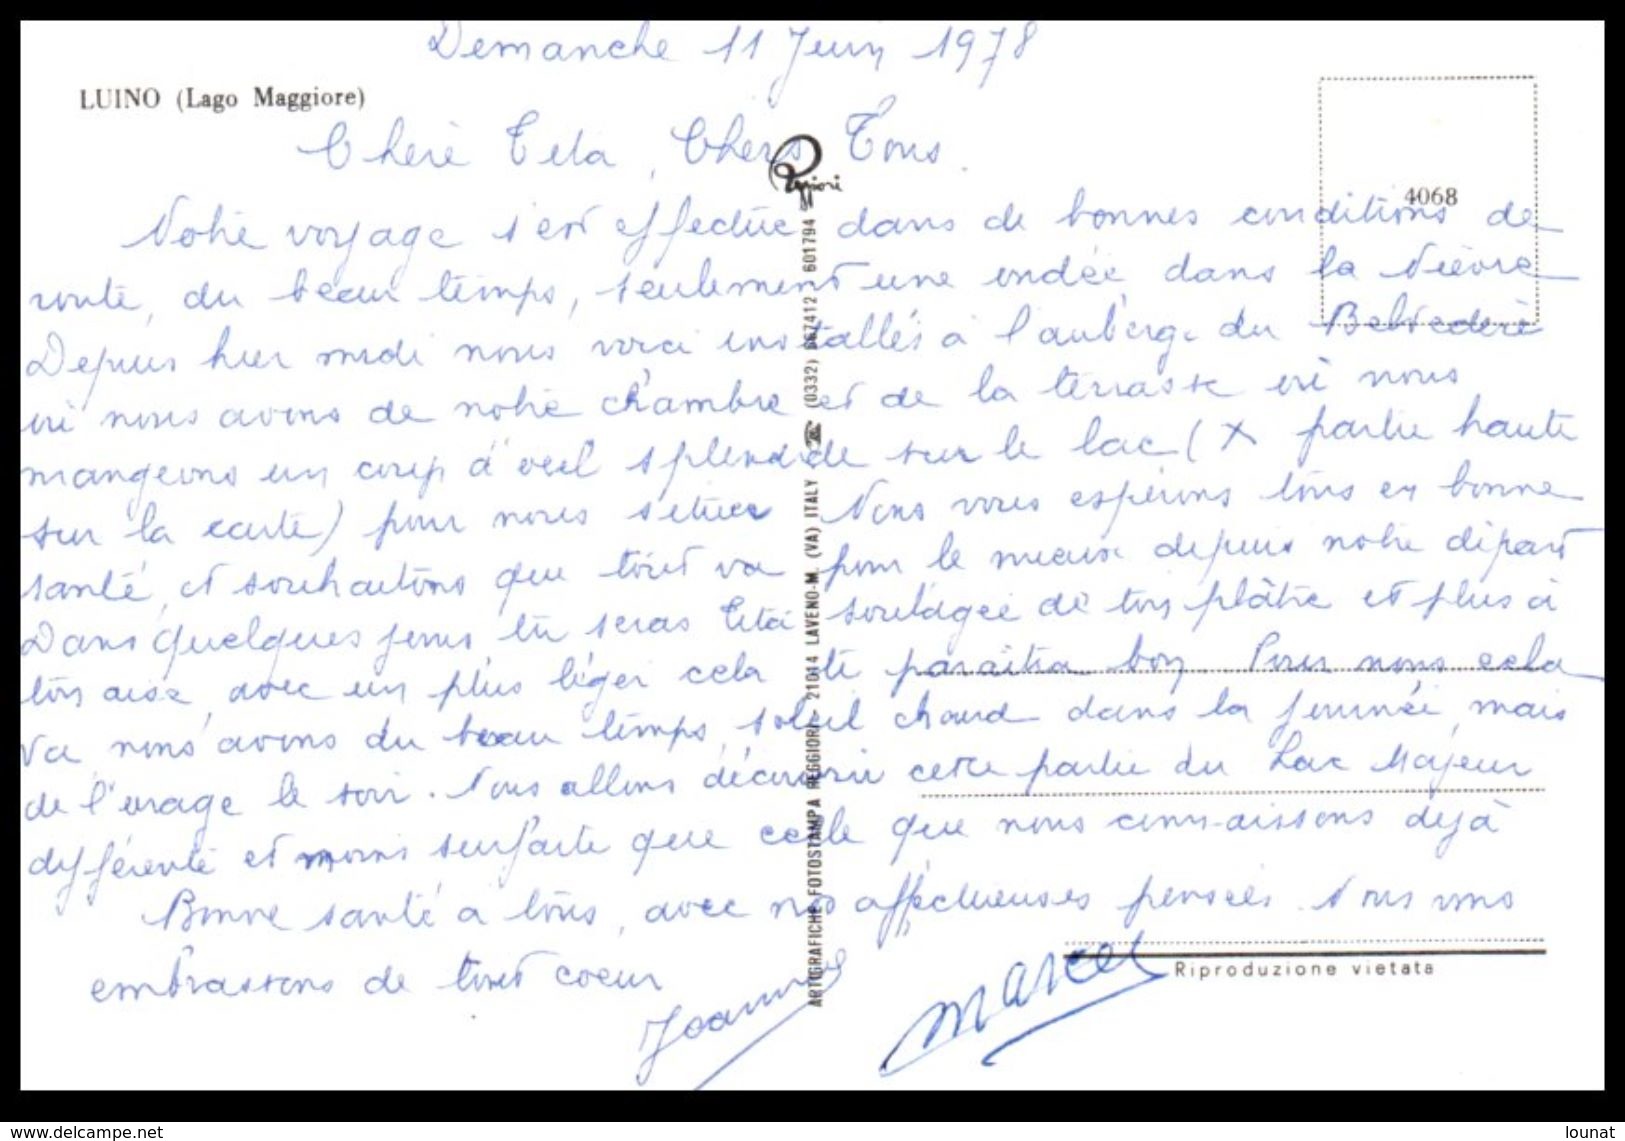 Demanche 11 Juin 1978
LUINO (Lago Maggiore)
Chère Téta, Chers Tous.
Reggiori
4068
Notre voyage s'est effectué dans de bonnes conditions de
route, du beau temps, seulement une ondée dans la Nièvre
Depuis hier midi nous voici installés à l'auberge du Belvédère
où nous avons de notre chambre et de la terrasse où nous
mangeons un coup d'oeil splendide sur le lac (X partie haute
sur la carte) pour nous situer Nous vous espérons tous en bonne
santé, et souhaitons que tout va pour le mieux depuis notre départ
Dans quelques jours tu seras Téta soulagée de ton plâtre et plus à
ton aise, avec un plus léger cela te paraîtra bon. Pour nous cela
va nous avons du beau temps, soleil chaud dans la journée, mais
de l'orage le soir. Nous allons découvrir cette partie du Lac Majeur
différente et moins surfaite que celle que nous connaissons déjà
Bonne santé à tous, avec nos affectueuses pensées. Nous vous
embrassons de tout coeur
Joanny
Marcel
ARTIGRAFICHE FOTOSTAMPA REGGIORI - 21014 LAVENO-M. (VA) ITALY ☎ (0332) 667412 601794
Riproduzione vietata
www.delcampe.net
lounat